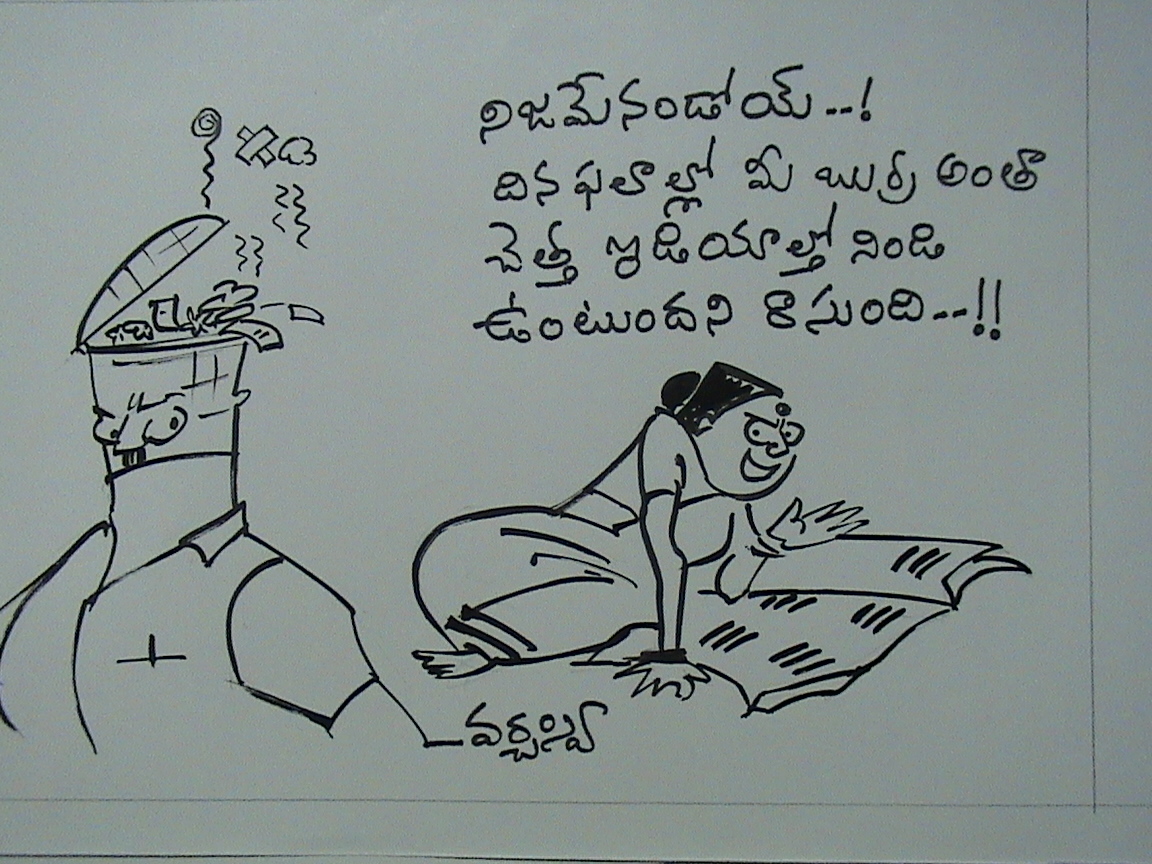 నిజమేనండోయ్--!
దినఫలాల్లో మీ బుర్ర అంతా
చెత్త ఇడియాల్తో నిండి
ఉంటుందని రాసుంది--!!
వర్చస్వి